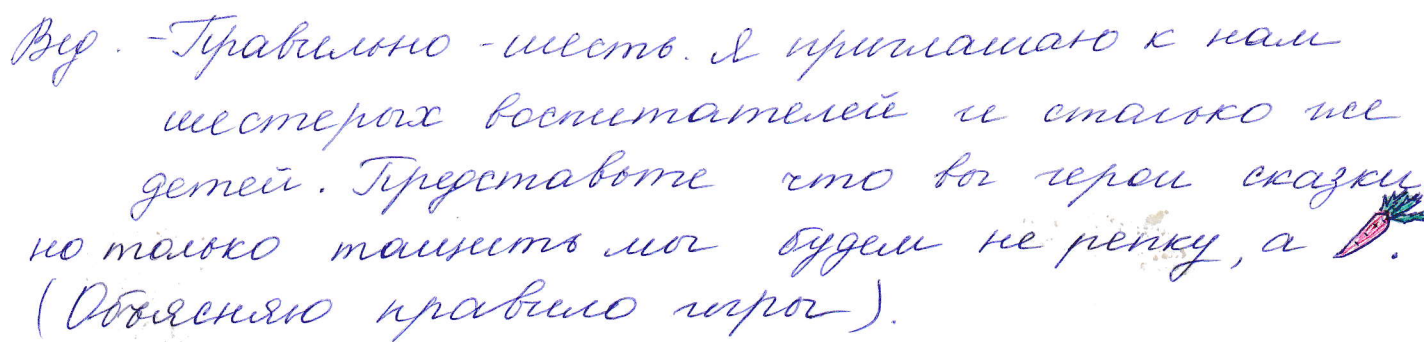 Вед. - Правильно - шесть. Я приглашаю к нам
шестерых воспитателей и столько же
детей. Представьте что вы герои сказки
но только тащить мы будем не репку, а .
(Объясняю правило игры).